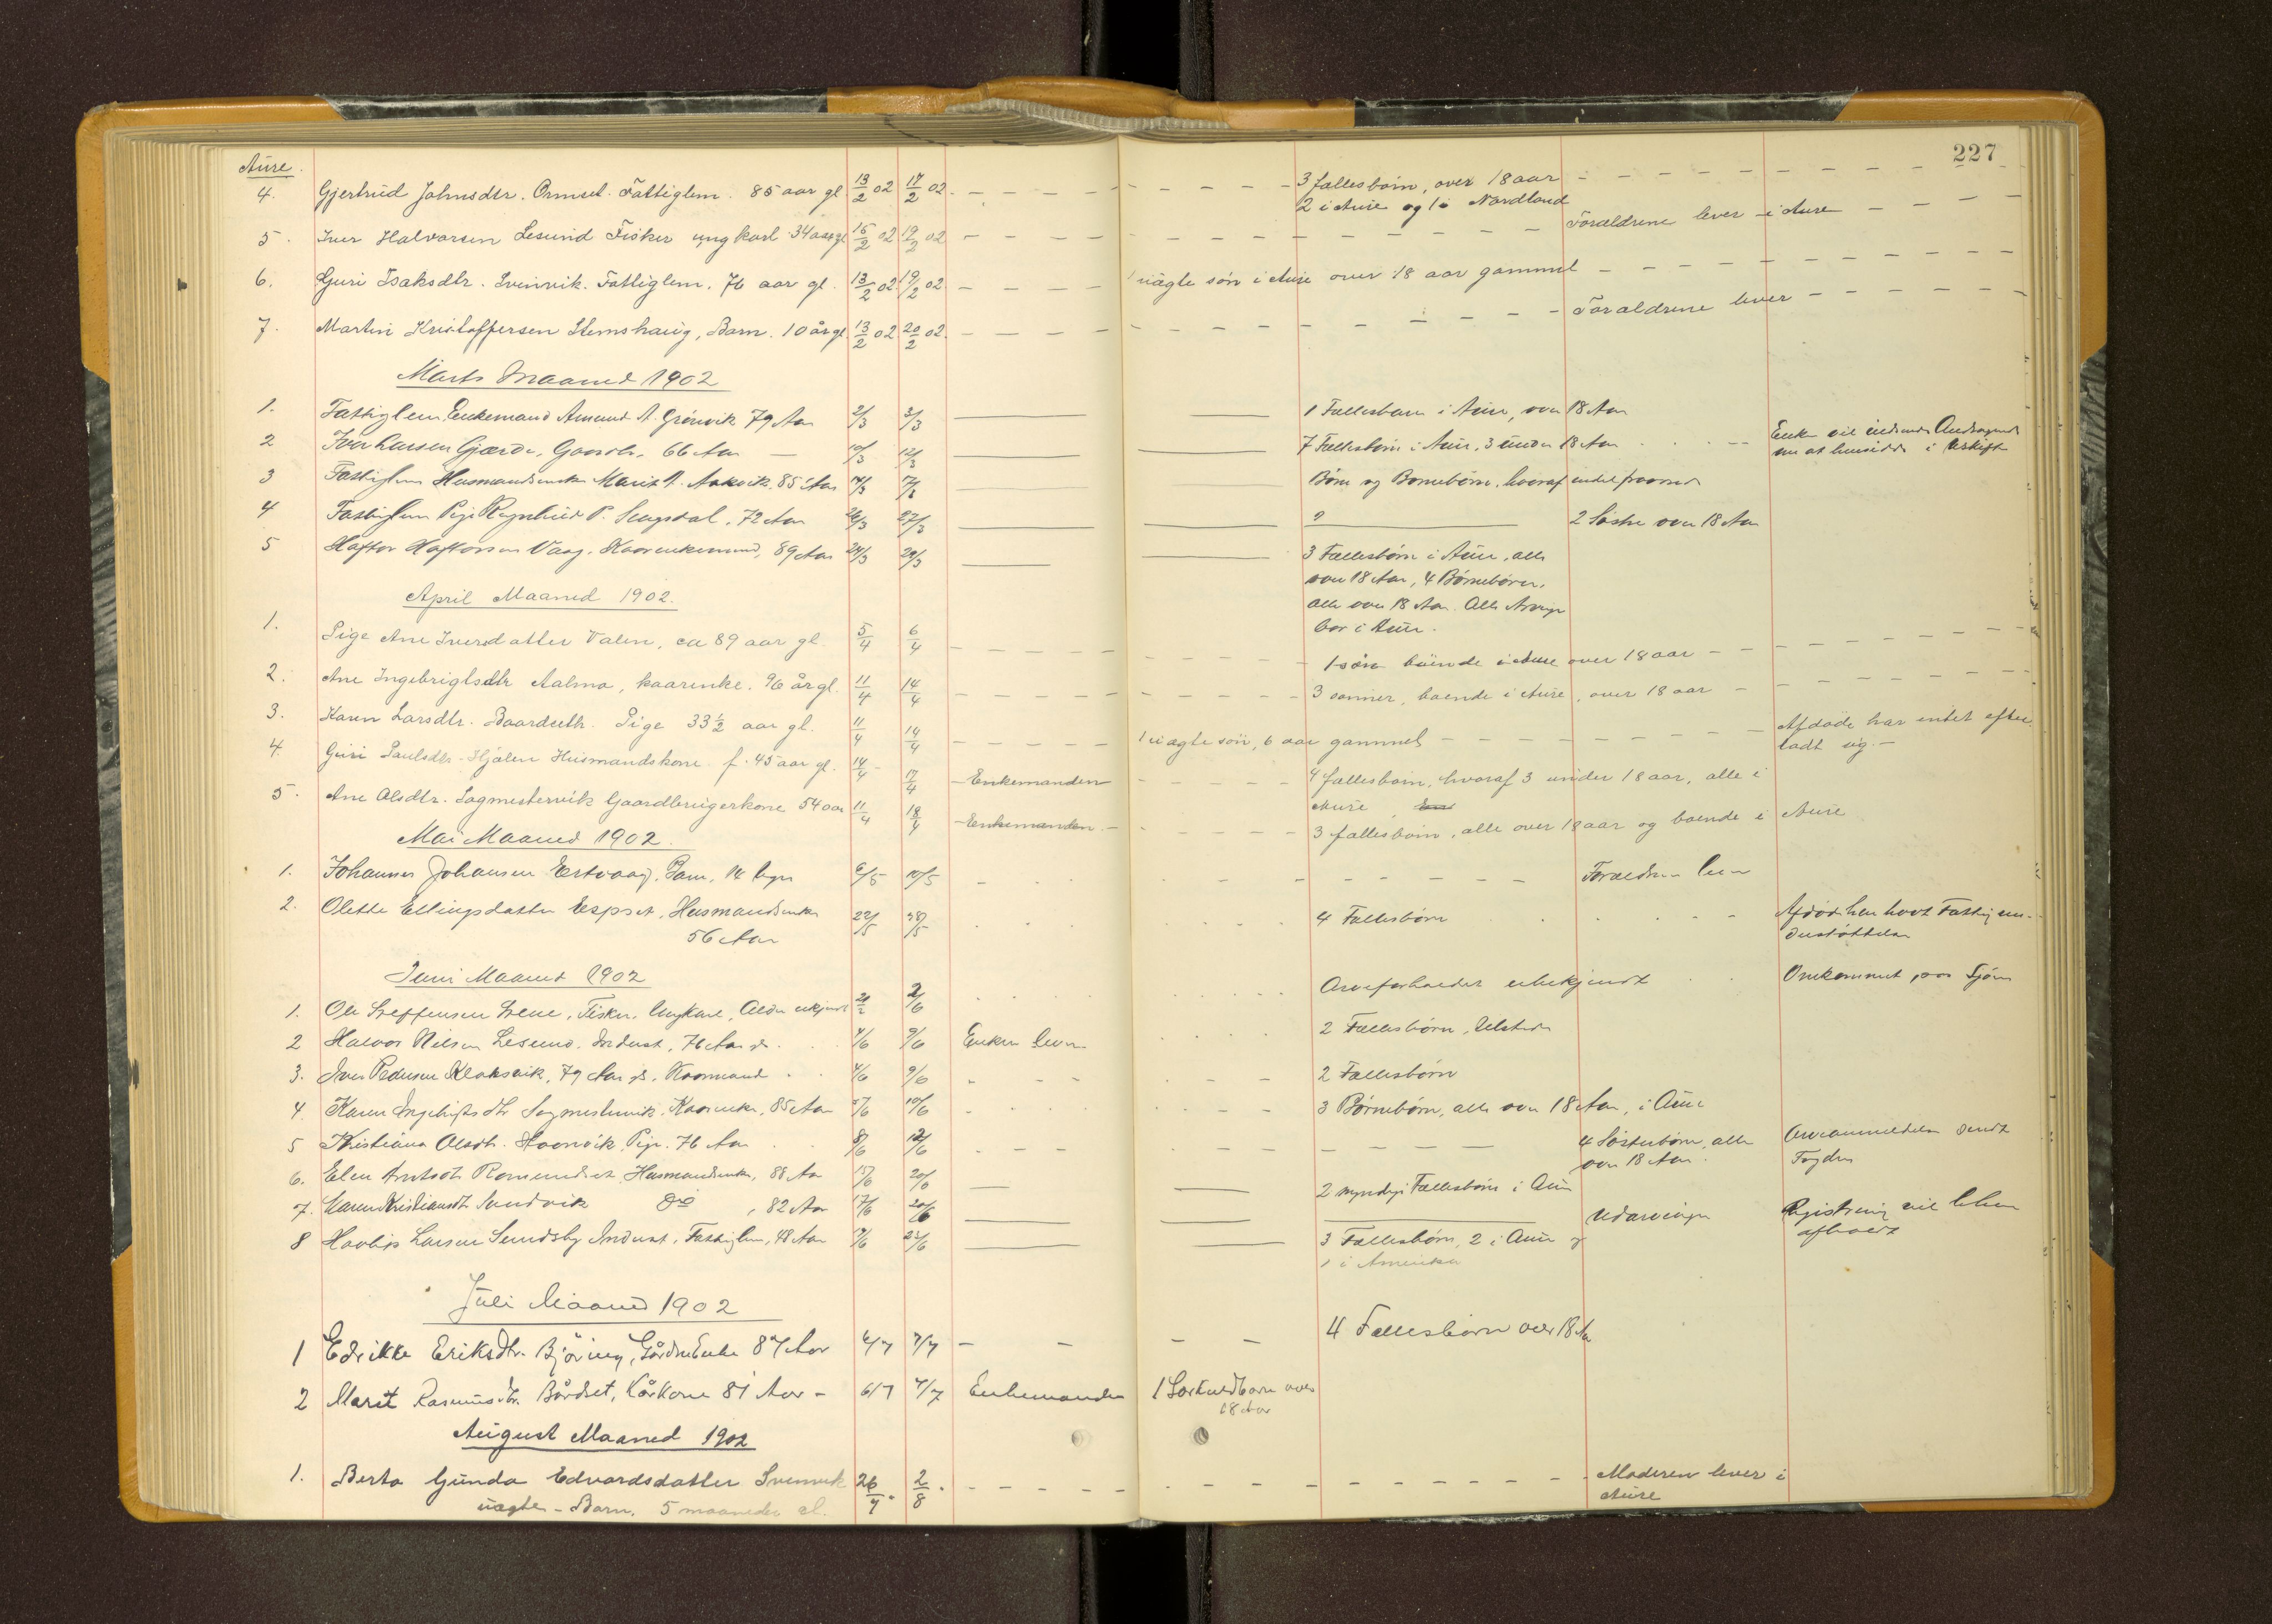 227
Aure.
4. Gjertrud Johnsdtr. Ormset. Fattiglem. 85 aar gl 13/2 02 17/2 02. 3 fællesbørn, over 18 aar
2 i Aure og 1 i Nordland
5. Iver Halvorsen Lesund Fisker ungkarl 34 aar gl 15/2 02 19/2 02 Forældrene lever i Aure
6. Guri Isaksdtr. Svinvik. Fattiglem. 76 aar gl. 13/2 02 19/2 02 1 uægte søn i Aure over 18 aar gammel
7. Martin Kristoffersen Stemshaug, Barn. 10 år gl. 13/2 02 20/2 02. Forældrene lever
Marts Maaned 1902
1. Fattiglem Enkemand Amund A. Grønvik 79 Aar 2/3 3/3 1 Fællesbarn i Aure, over 18 Aar
2 Iver Larsen Gjærde, Gaardb. 66 Aar 10/3 12/3 7 Fællesbørn i Aure, 3 under 18 Aar Enken vil indsende Andragende
om at hensidde i Uskifte
3 Fattiglem Husmandsenke Marit A. Aakvik. 85 Aar 4/3 7/3 Børn og Børnebørn, hvoraf endel
4 Fattiglem Pige Ragnhild P. 72 Aar 26/3 27/3 ? 2 Søstre over 18 Aar
5 Haftor Haftorsen Vaag, Kaarenkemand, 89 Aar 24/3 29/3 3 Fællesbørn i Aure, alle
over 18 Aar, 4 Børnebørn,
alle over 18 Aar. Alle Arvinger
bor i Aure.
April Maaned 1902.
1. Pige Ane Iversdatter Valen, ca 89 aar gl 5/4 6/4 1 søn boende i Aure over 18 aar
2. Ane Ingebrigtsdtr Aalmo, kaarenke. 96 år gl. 11/4 14/4 3 sønner, boende i Aure, over 18 aar
3. Karen Larsdtr. Baardseth. Pige 33 ½ aar gl. 11/4 14/4 1 uægte søn, 6 aar gammel Afdøde har intet efter-
ladt sig.-
4. Guri Paulsdtr. Hjølen Husmandskone f. 45 aar gl. 14/4 17/4 Enkemanden 4 fællesbørn, hvoraf 3 under 18 aar, alle i
Aure
5. Ane Olsdtr. Sagmestervik Gaardbrugerkone 54 aar 11/4 18/4 Enkemanden.- 3 fællesbørn, alle over 18 aar og boende i Aure
Mai Maaned 1902.
1. Johannes Johansen Ertvaag, Barn, 14 Dager 6/5 10/5 Forældrene lever
2. Olette Ellingsdatter Espset, Husmandsenke 22/5 28/5 4 Fællesbørn Afdøde har havt Fattigun-
derstøttelse
56 Aar
Juni Maaned 1902
1. Ole Steffensen Stene, Fisker, Ungkarl, Alder ukjendt 21/2 2/6 Arveforholdet ubekjendt Omkommet paa Sjøen
2 Halvor Nilsen Lesund. Inderst, 76 Aar gl. 4/6 9/6 Enken lever 2 Fællesbørn, tilstede
3. Iver Pedersen Klaksvik, 79 Aar gl. Kaarmand 4/6 9/6 2 Fællesbørn
4. Karen Ingebrigtsdtr Sagmestervik, Kaarenke, 85 Aar 5/6 10/6 3 Børnebørn, alle over 18 Aar, i Aure
5 Kristiana Olsdtr. Haavik, Pige. 76 Aar 8/6 12/6 4 Søsterbørn, alle
over 18 Aar. Arveanmeldelse sendt
Fogden
6. Elen Arntsdtr Romundset, Husmandsenke, 88 Aar 15/6 20/6 2 myndige Fællesbørn i Aure
7. Maren Kristiansdtr Sandvik do, 82 Aar 17/6 20/6 Udarvinger Registrering vil blive
afholdt
8 Haldis Larsen Sundsby Inderst, Fattiglem, 48 Aar 17/6 23/6 3 Fællesbørn, 2 i Aure og
1 i Amerika
Juli Maaned 1902
1 Edrikke Eriksdtr. Bjøring, Gårdm.Enke 87 Aar 6/7 7/7 4 Fællesbørn over 18 Aar
2 Marit Rasmusdtr. Bårdset, Kårkone 81 Aar - 6/7 7/7 Enkemanden 1 Særkuldbarn over
18 Aar
August Maaned 1902
1. Berta Gunda Edvardsdatter Svinvik 26/7. 2/8. Moderen lever i
Aure
uægte - Barn, 5 maaneder gl.